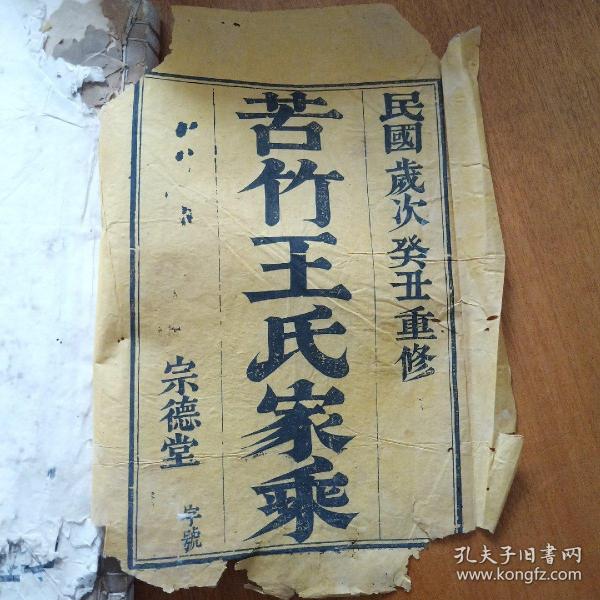 民國歲次癸丑重修
苦竹王氏家乘
宗德堂
字號
孔夫子旧書网
www.kongfz.com